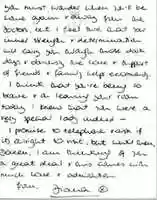 you must wonder when you'll be
home again & away from the
doctors, but I feel sure that your
inner strength & determination
will carry you through those dark
days & obviously the love & support
of friends & family helps enormously.
I think that you're being so
brave &
today I know that you were a
very special lady indeed –
I promise to telephone
if it's alright to visit, but until then,
I am thinking of you
a great deal & this comes with
much love & admiration
from,
Diana